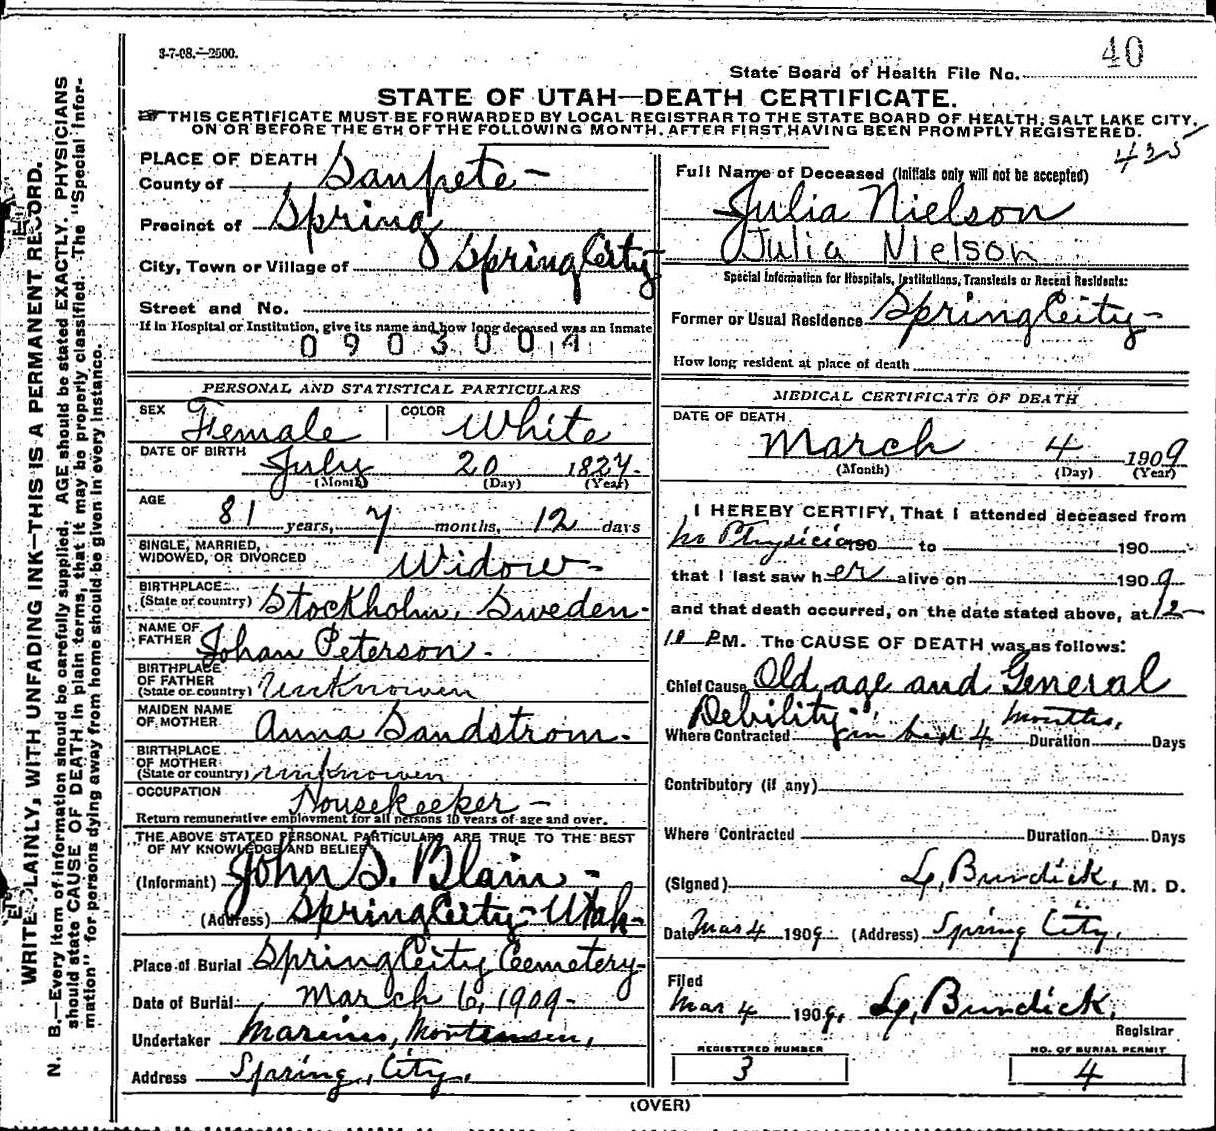 3-7-08.—2500.
40
State Board of Health File No.
STATE OF UTAH—DEATH CERTIFICATE.
THIS CERTIFICATE MUST BE FORWARDED BY LOCAL REGISTRAR TO THE STATE BOARD OF HEALTH, SALT LAKE CITY,
ON OR BEFORE THE 5TH OF THE FOLLOWING MONTH, AFTER FIRST HAVING BEEN PROMPTLY REGISTERED.
425
PLACE OF DEATH
County of Sanpete -
Precinct of Spring
City, Town or Village of Spring City
Street and No.
If in Hospital or Institution, give its name and how long deceased was an inmate
0903004
PERSONAL AND STATISTICAL PARTICULARS
SEX Female COLOR White
DATE OF BIRTH July 20 1827.
(Month) (Day) (Year)
AGE 81 years, 7 months, 12 days
SINGLE, MARRIED,
WIDOWED, OR DIVORCED Widow -
BIRTHPLACE
(State or country) Stockholm, Sweden -
NAME OF
FATHER Johan Peterson.
BIRTHPLACE
OF FATHER
(State or country) Unknowen
MAIDEN NAME
OF MOTHER Anna Sandstrom -
BIRTHPLACE
OF MOTHER
(State or country) unknowen
OCCUPATION Housekeeker -
Return remunerative employment for all persons 10 years of age and over.
THE ABOVE STATED PERSONAL PARTICULARS ARE TRUE TO THE BEST
OF MY KNOWLEDGE AND BELIEF
(Informant) John S. Blain -
(Address) Spring City - Utah -
Place of Burial Spring City Cemetery -
Date of Burial March 6, 1909 -
Undertaker Marinus, Mortensen,
Address Spring, City,
Full Name of Deceased (Initials only will not be accepted)
Julia Nielson
Julia Nielson
Special Information for Hospitals, Institutions, Transients or Recent Residents:
Former or Usual Residence Spring City -
How long resident at place of death
MEDICAL CERTIFICATE OF DEATH
DATE OF DEATH
March 4 1909
(Month) (Day) (Year)
I HEREBY CERTIFY, That I attended deceased from
no Physician 190 to 190
that I last saw h er alive on 190 9
and that death occurred, on the date stated above, at 12-
10 P M. The CAUSE OF DEATH was as follows:
Chief Cause Old age and General
Debility months,
Where Contracted 4 Duration Days
Contributory (if any)
Where Contracted Duration Days
(Signed) Burdick, M. D.
Date Mar 4 1909 (Address) Spring City,
Filed
Mar 4 1909, Burdick.
Registrar
REGISTERED NUMBER
3
NO. OF BURIAL PERMIT
4
(OVER)
WRITE PLAINLY, WITH UNFADING INK—THIS IS A PERMANENT RECORD.
N. B.—Every item of information should be carefully supplied. AGE should be stated EXACTLY. PHYSICIANS
should state CAUSE OF DEATH in plain terms, that it may be properly classified. The "Special Infor-
mation" for persons dying away from home should be given in every instance.